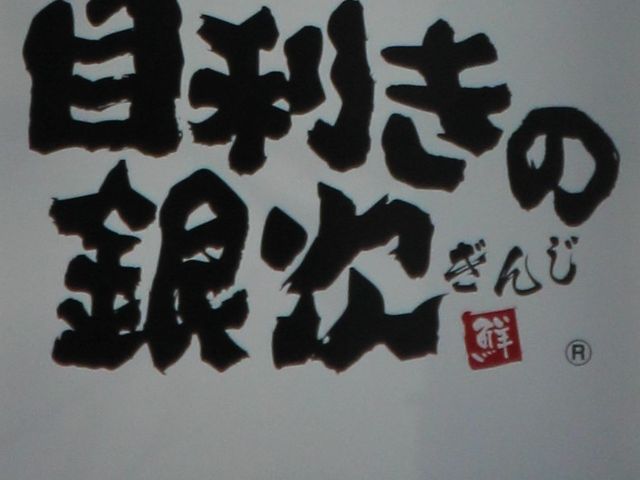 目利きの
銀次
ぎんじ
鮮
®